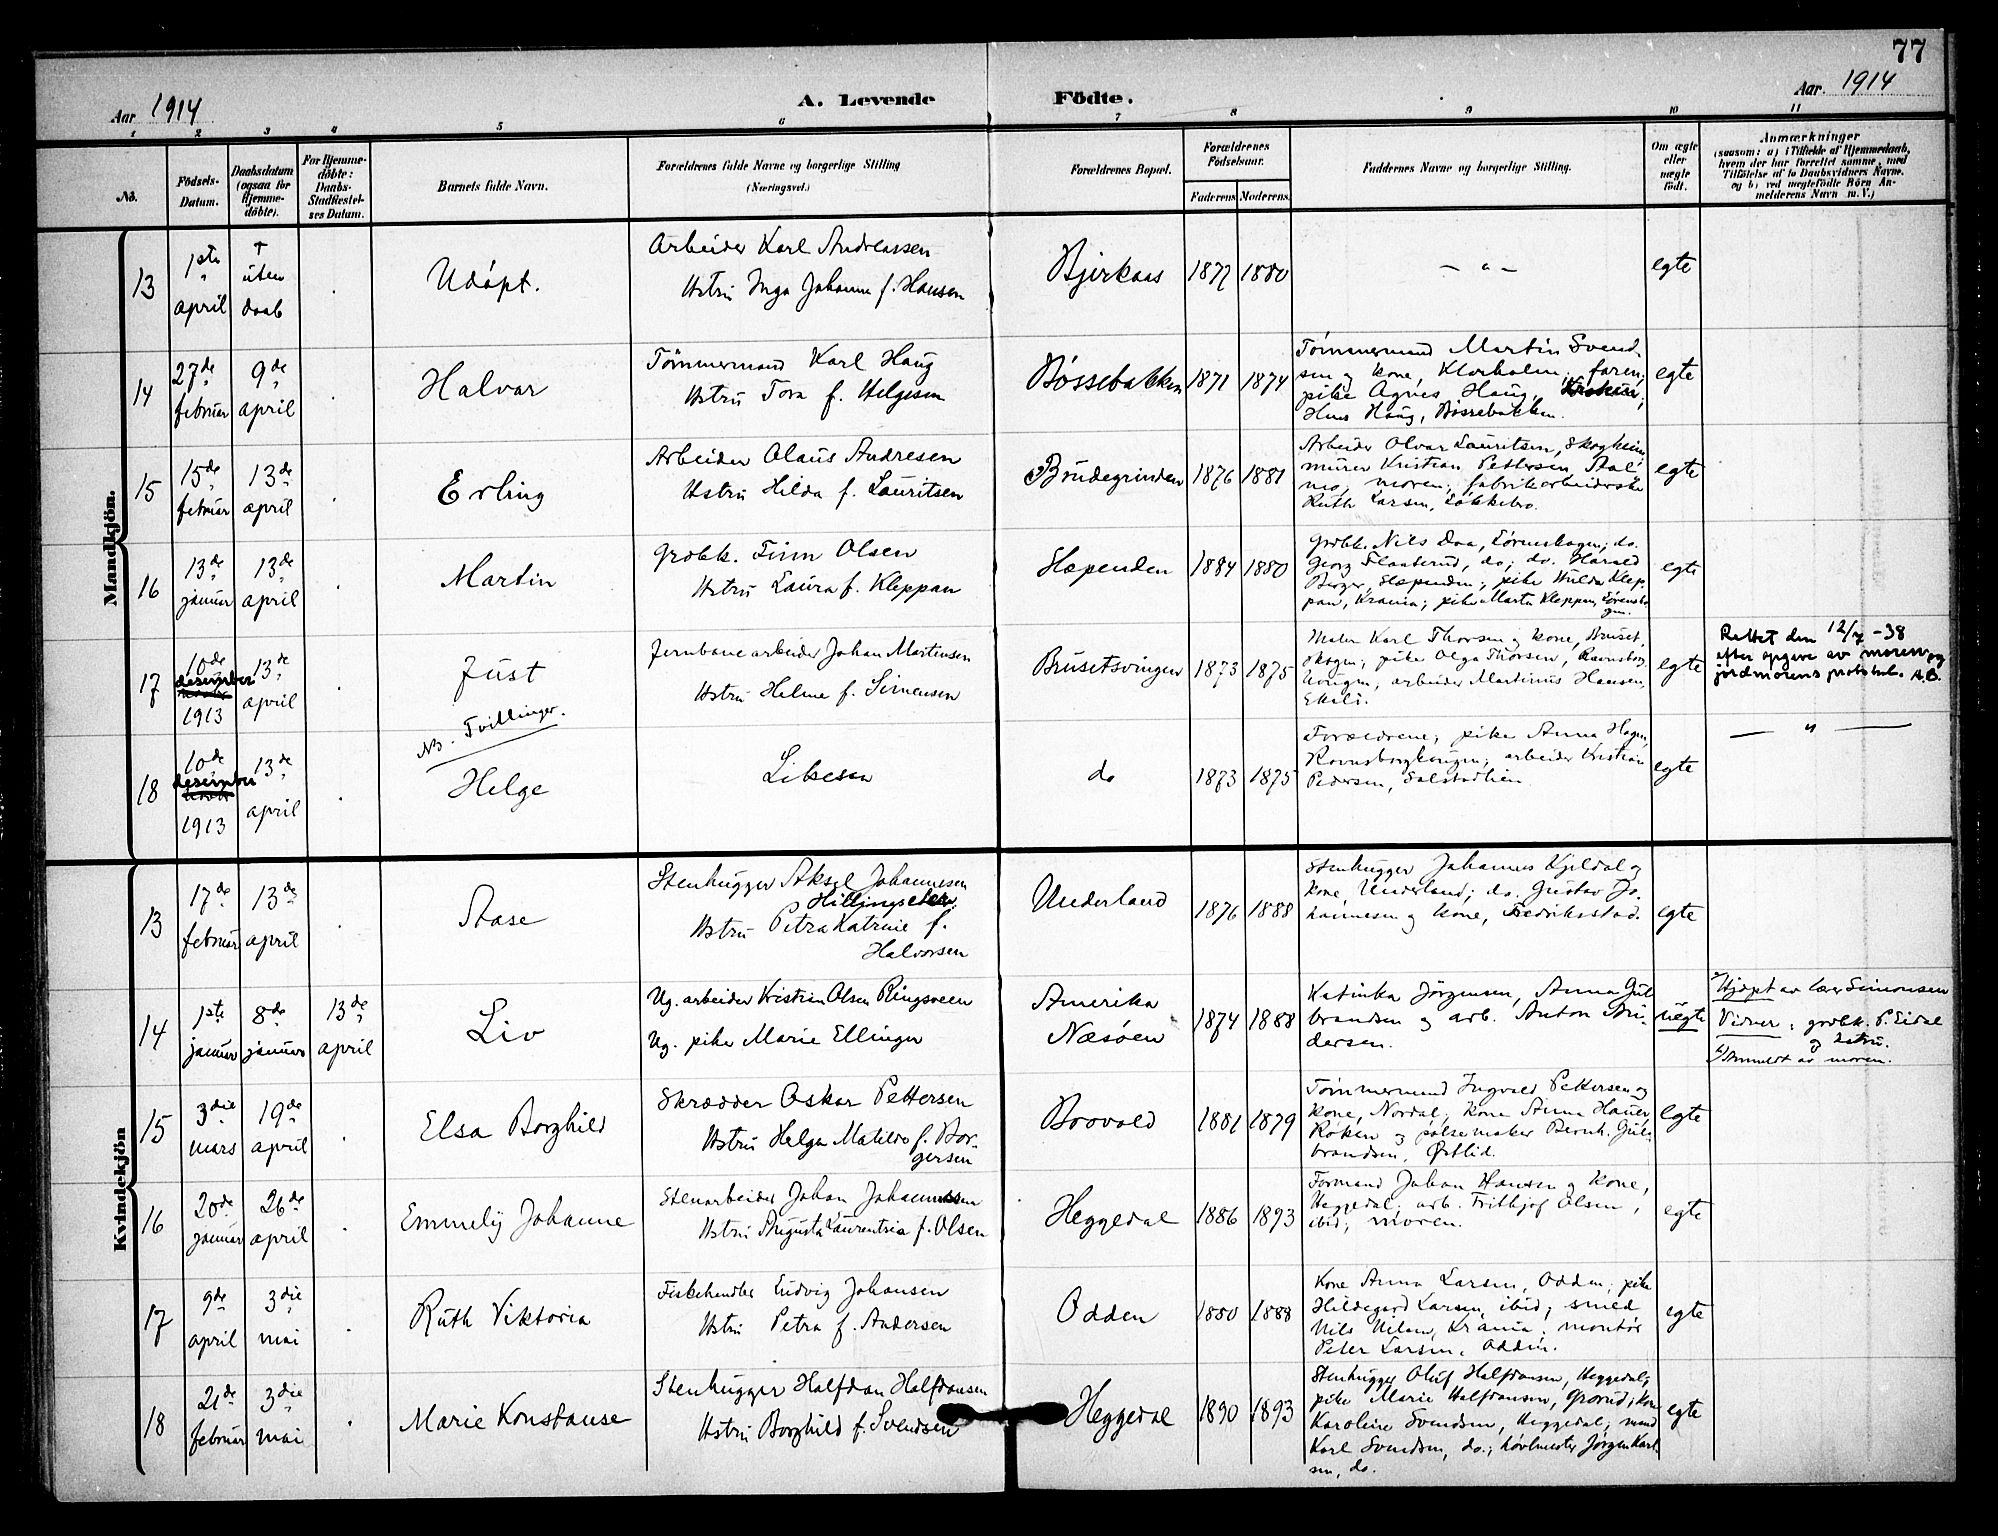 77
Aar 1914
A. Levende
Födte.
Aar. 1914
1 2 3 4 5 6 7 8 9 10 11
No.
Födsels-
Datum.
Daabsdatum
(ogsaa for
Hjemme-
döbte).
For Hjemme-
döbte:
Daabs-
Stadfestel-
ses Datum.
Barnets fulde Navn.
Forældrenes fulde Navne og borgerlige Stilling
(Næringsvei.)
Forældrenes Bopæl.
Forældrenes
Födselsaar.
Faderens Moderens.
Faddernes Navne og borgerlige Stilling.
Om ægte
eller
uægte
födt.
Anmærkninger
(saasom: a) i Tilfælde af Hjemmedaab,
hvem der har forrettet samme, med
Tilföielse af to Daabsvidners Navne.
og b) ved uægtefödte Börn An-
melderens Navn m. V.)
Mandkjön.
13
1ste
april
†
uten
daab
Udöpt.
Arbeider Karl Andreassen
Hstru Inga Johanne f. Hansen
Bjerkaas
1877 1880
— " —
egte
14
27de
februar
9de
april
Halvar
Tömmermand Karl Haug
Hstru Tora f. Helgesen
Bössebakken
1871 1874
Tömmermand Martin Svend-
sen og kone, Klokholm; faren;
pike Agnes Haug,
Hans Haug, Bössebakken.
egte
15
15de
februar
13de
april
Erling
Arbeider Olaus Andresen
Hstru Hilda f. Lauritsen
Brudegrinden
1876 1881
Arbeider Olvar Lauritsen, Skogheim,
murer Kristian Pettersen, Sol-
mo, moren; fabrikarbeiderske
Ruth Larsen, Løkkebro.
egte
16
13de
januar
13de
april
Martin
Grobk. Finn Olsen
Hstru Laura f. Kleppan
Hæpenden
1884 1880
Grobk. Nils Daa, Lörenskogen; do.
Georg Flaaterud, do; do. Harald
Berger, Hæpenden; pike Hulda Klep-
pan, Krania; pike Marta Kleppan, Lörensko-
gen.
egte
17
10de
desember
1913
13de
april
Just
Jernbanearbeider Johan Martinsen
Hstru Helene f. Simensen
Brusetsvingen
1873 1875
Maler Karl Thorsen og kone, Bruset-
skogen; pike Olga Thorsen, Ravnsborg-
kongen, arbeider Martinus Hansen,
Ekeli.
egte
Rettet den 12/7 -38
efter opgave av moren og
jordmorens protokol. A.B.
NB. Tvillinger.
18
10de
desember
1913
13de
april
Helge
Libesen
do
1873 1875
Forældrene; pike Anna Hagen,
Ravnsborgkongen; arbeider Kristian
Pedersen, Solstadlien.
egte
— " —
Kvindekjön
13
17de
februar
13de
april
Aase
Stenhugger Aksel Johannesen
Hstru Petra Katrine f.
Halvorsen
Underland
1876 1888
Stenhugger Johannes Kjeldal og
kone Underland; do. Gustav Jo-
hannesen og kone, Fredriksstad.
egte
14
1ste
januar
8de
januar
13de
april
Liv
Ug. arbeider Kristian Olsen Ringsveen
Ug. pike Marie Ellinger
Amerika
Næsöen
1874 1888
Katinka Jörgensen, Anna Gul-
brandsen og arb. Anton An-
dersen.
uegte
Hjdøpt av lærer Simonsen
Vidner: grobk. P. Eidal
og hstru.
Anmeldt av moren.
15
3die
mars
19de
april
Elsa Borghild
Skrædder Oskar Pettersen
Hstru Helga Matilde f. Bor-
gersen
Brovold
1881 1879
Tömmermand Ingvald Pettersen og
kone, Nordal; kone Anna Hauer
Röken og pölsemaker Bernh. Gul-
brandsen, Østlid.
egte
16
20de
januar
26de
april
Emmely Johanne
Stenarbeider Johan Johannessen
Hstru Augusta Laurentsia f. Olsen
Heggedal
1886 1893
Formand Johan Hansen og kone,
Heggedal; arb. Frithjof Olsen,
ibid; moren.
egte
17
9de
april
3die
mai
Ruth Viktoria
Fiskehandler Ludvig Johansen
Hstru Petra f. Andersen
Odden
1880 1888
Kone Anna Larsen, Odden; pike
Hildegard Larsen, ibid; smed
Nils Nilsen, Krania; montör
Peter Larsen, Odden.
egte
18
21de
februar
3die
mai
Marie Konstanse
Stenhugger Halfdan Halfdansen
Hstru Borghild f. Svendsen
Heggedal
1890 1893
Stenhugger Oluf Halfdansen, Heggedal;
pike Marie Halfdansen, Grorud; kone
Karoline Svendsen, Heggedal; mand
Karl Svendsen, do.; hövlmester Jörgen Karl-
sen, do.
egte